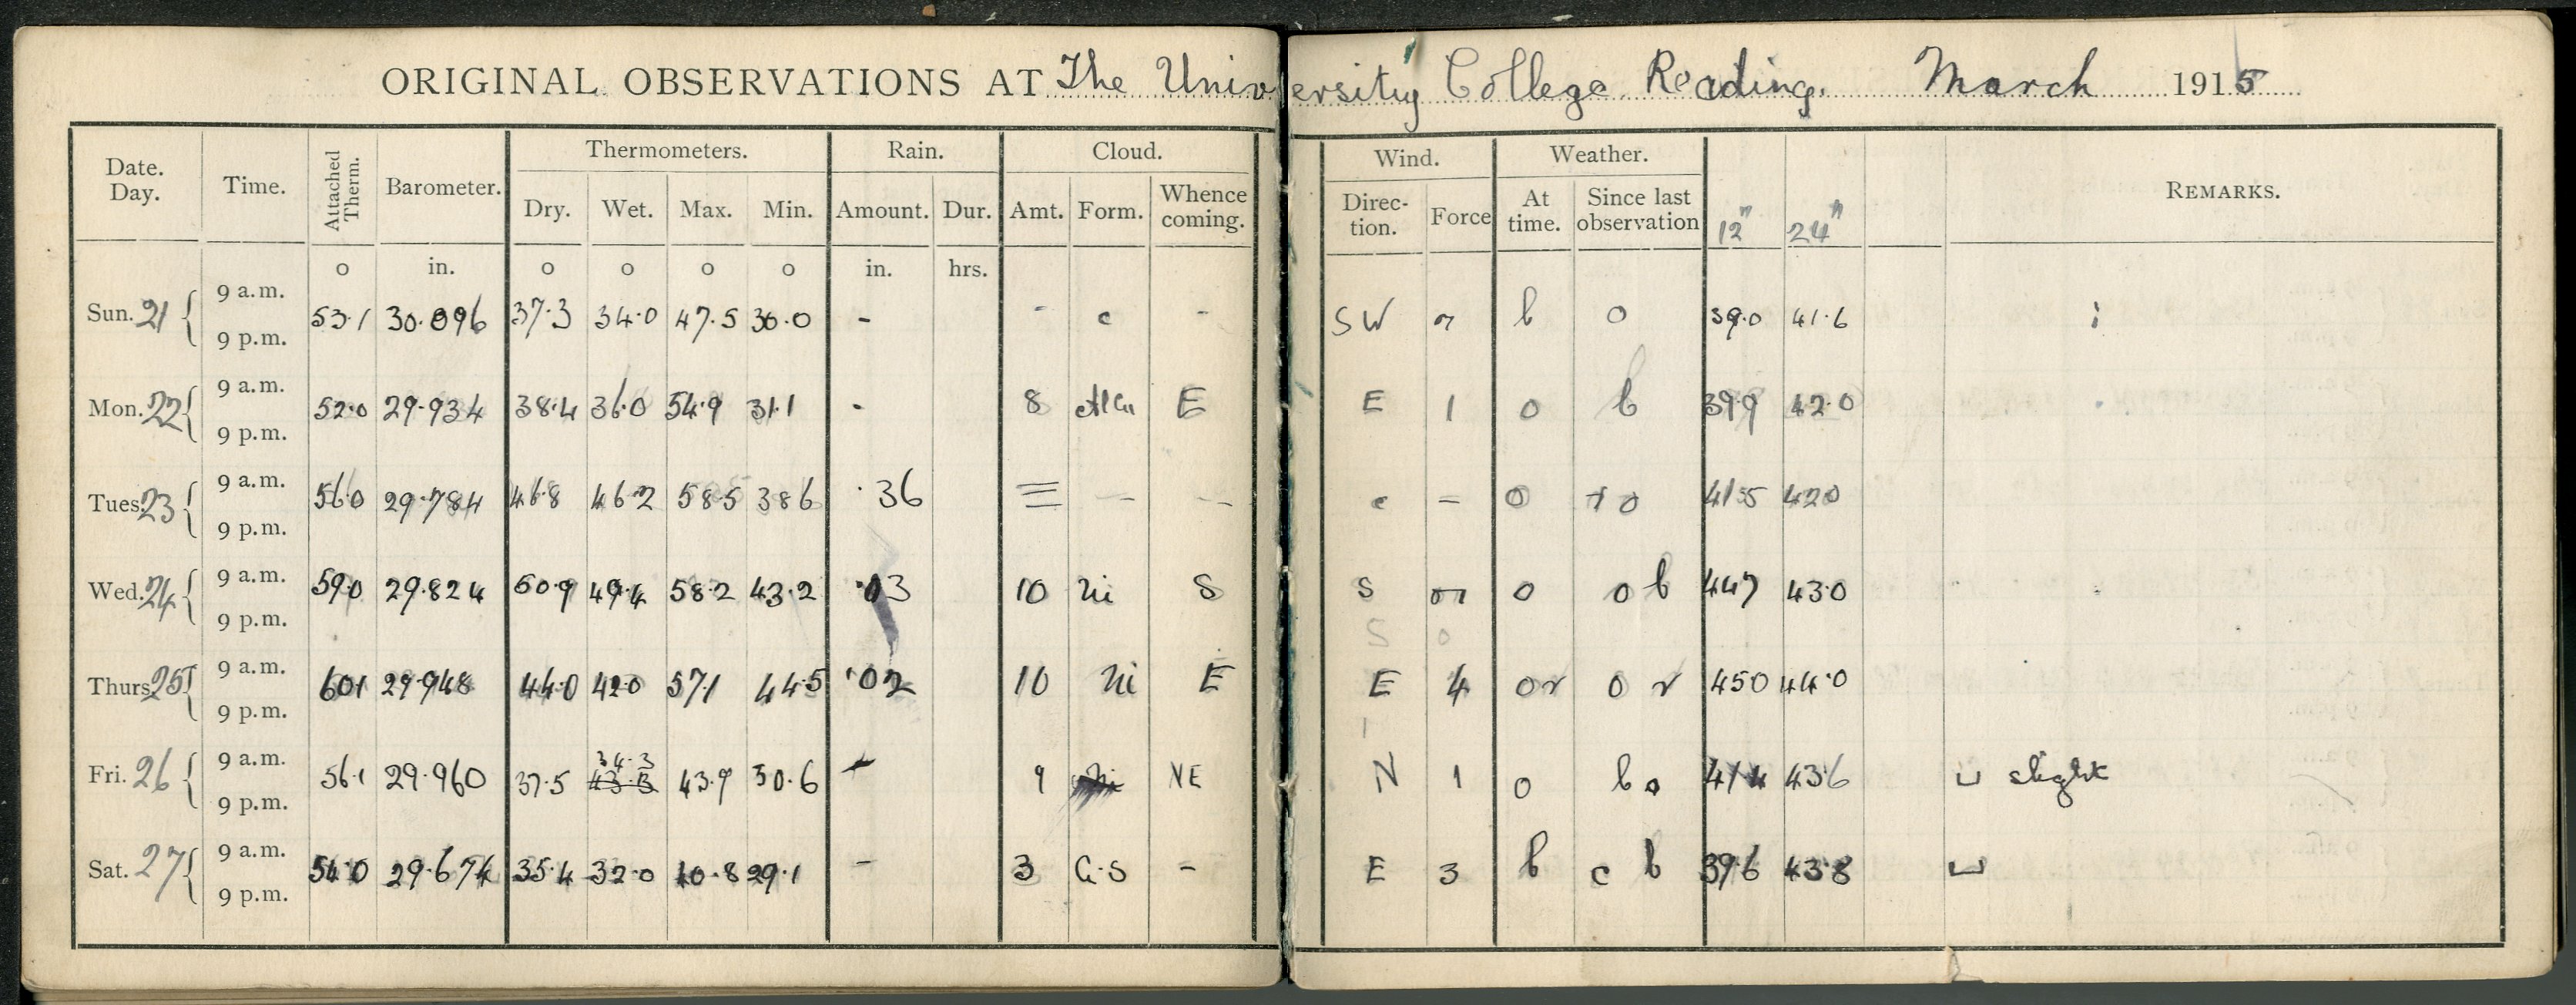 ORIGINAL OBSERVATIONS AT The University College Reading. March 1915
Date. Day. Time. Attached Therm. Barometer. Thermometers. Rain. Cloud. Wind. Weather. REMARKS.
Dry. Wet. Max. Min. Amount. Dur. Amt. Form. Whence coming. Direc- tion. Force At time. Since last observation 12" 24"
o in. o o o o in. hrs.
9 a.m.
Sun. 21 53.1 30.096 37.3 34.0 47.5 30.0 - - c - SW b o 39.0 41.6
9 p.m.
9 a.m.
Mon. 22 52.0 29.934 38.4 36.0 54.9 31.1 - 8 E E 1 o b 39.9 42.0
9 p.m.
9 a.m.
Tues. 23 56.0 29.784 46.8 46.2 58.5 38.6 .36 ≡ - - c - o r o 41.5 42.0
9 p.m.
9 a.m.
Wed. 24 59.0 29.824 50.9 49.4 58.2 43.2 .03 10 Ni S S o o b 44.7 43.0
9 p.m. S o
9 a.m.
Thurs. 25 60.1 29.948 44.0 42.0 57.1 44.5 .02 10 Ni E E 4 or o r 45.0 44.0
9 p.m.
9 a.m. 34.3
Fri. 26 56.1 29.960 37.5 43.9 30.6 - 9 NE N 1 o b o 41.4 43.6 ⊔ slight
9 p.m.
9 a.m.
Sat. 27 54.0 29.674 35.4 32.0 40.8 29.1 - 3 Ci-S - E 3 b c b 39.6 43.8 ⊔
9 p.m.